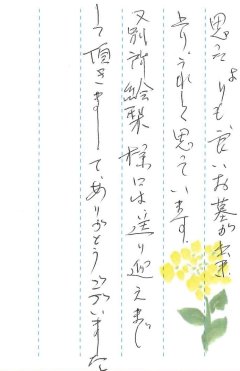 思ったよりも良いお墓が出来
よりうれしく思っています。
又別府絵梨様には送り迎えまで
して頂きましてありがとうございました